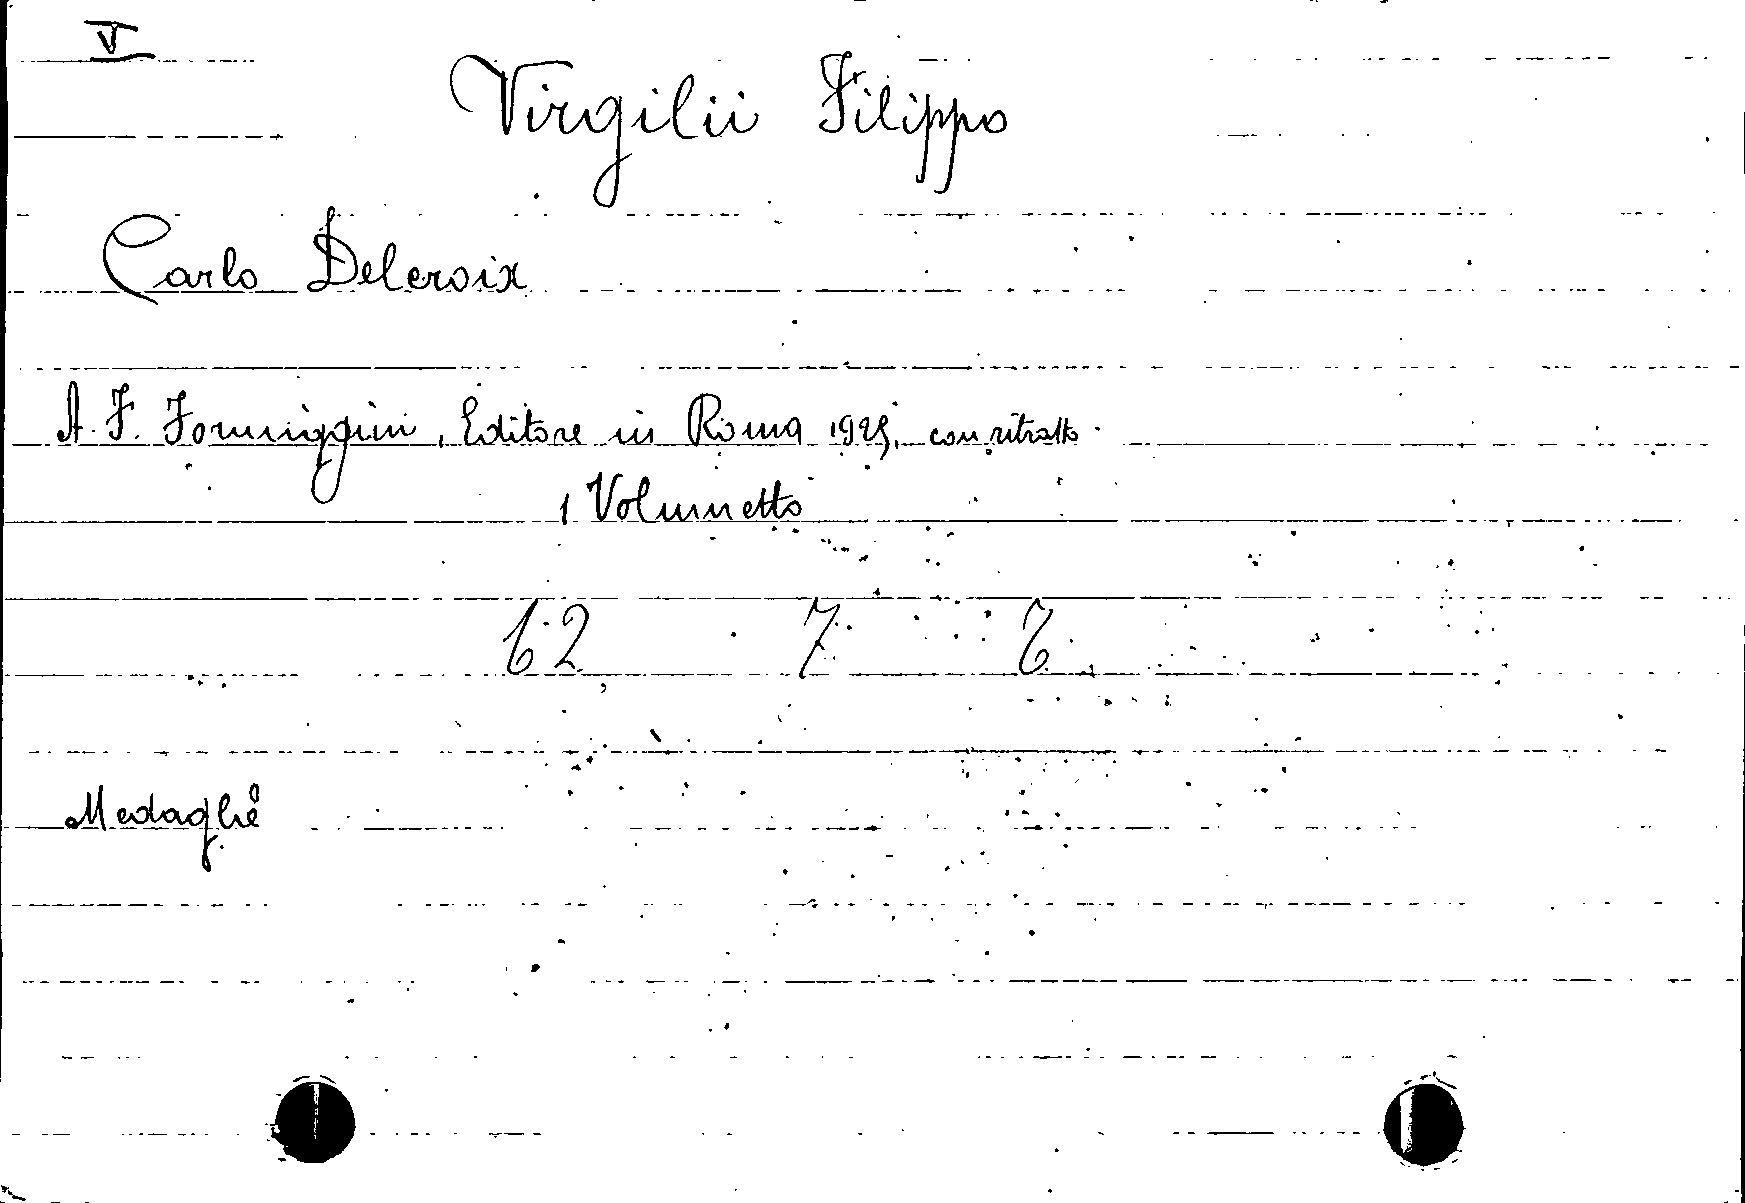 V
Virgilii Filippo
Carlo Delcroix
A. F. Formiggini, Editore in Roma 1925, con ritratto.
1 Volumetto
62 7 7
Medaglie